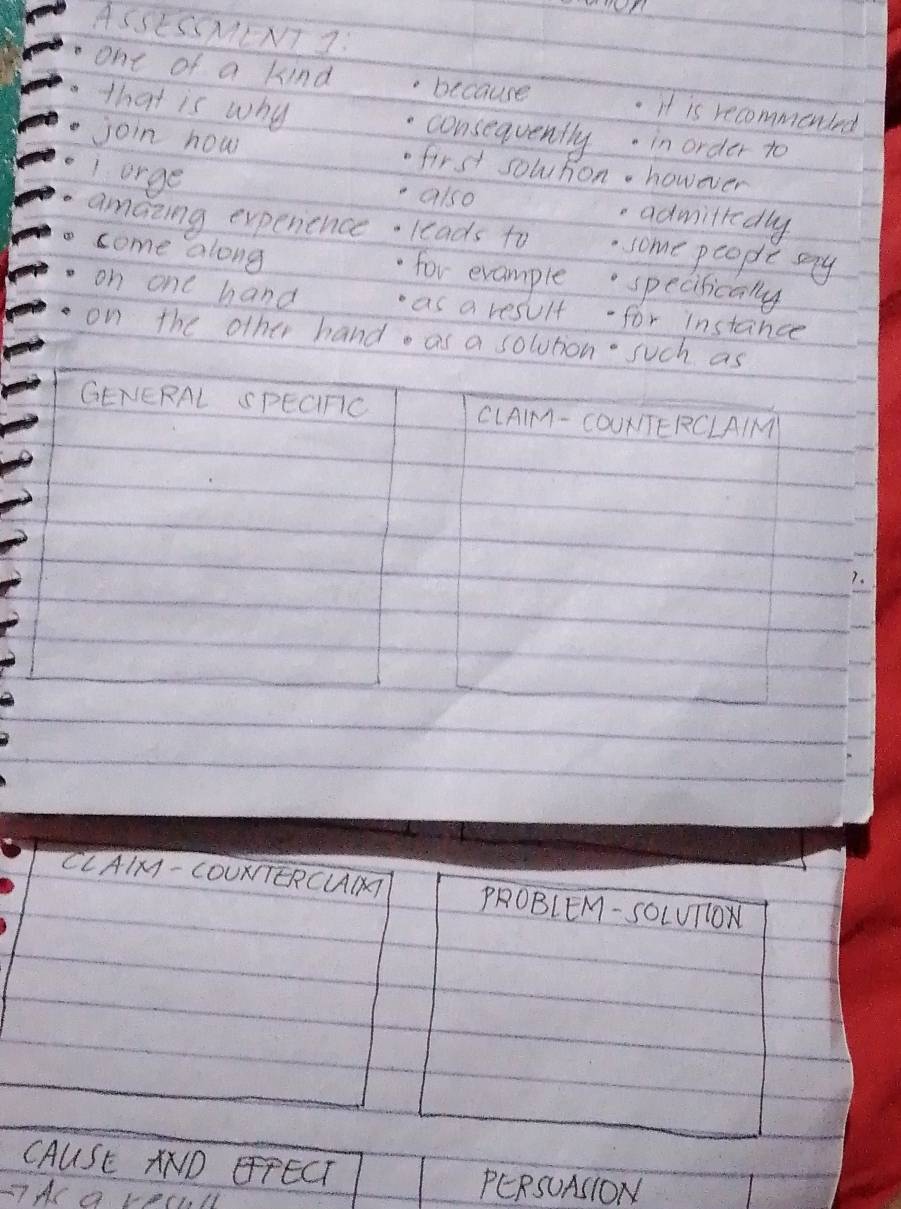 ASSESSMENT 1:
• one of a kind
• that is why
• join now
• i urge
• amazing experience
• come along
• on one hand
• on the other hand
• because
• consequently
• first solution
• also
• leads to
• for example
• as a result
• as a solution
• it is recommended
• in order to
• however
• admittedly
• some people say
• specifically
• for instance
• such as
GENERAL SPECIFIC
CLAIM - COUNTERCLAIM
CLAIM - COUNTERCLAIM
PROBLEM - SOLUTION
CAUSE AND EFFECT
→ As a result
PERSUASION